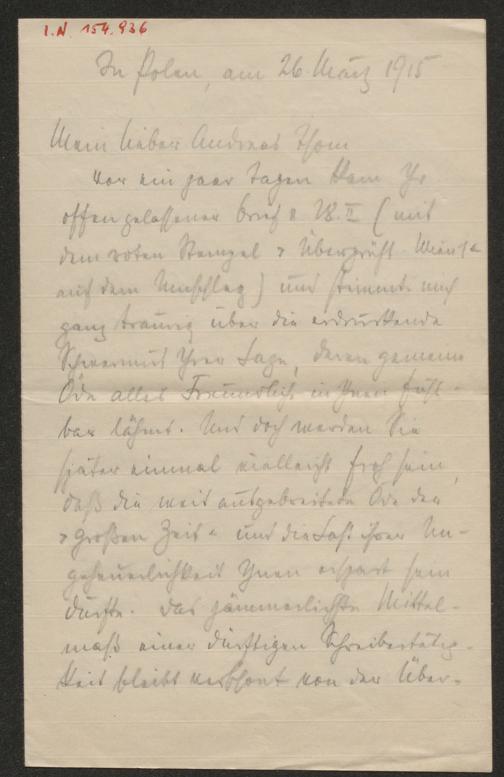 I.N. 154.936
In Polen, am 26. März 1915
Mein lieber Andreas Thom
vor ein paar Tagen kam Ihr
offen gelassener Brief v. 28. II (mit
dem roten Stempel » Überprüft. Wien 1«
auf dem Umschlag) und stimmte mich
ganz traurig über die erdrückende
Schwermut Ihrer Lage, deren gemeine
Öde alles Freundliche in Ihnen fühl-
bar lähmt. Und doch werden Sie
später einmal vielleicht froh sein,
daß die weit ausgebreitete Öde der
»großen Zeit« und die Last ihrer Un-
geheuerlichkeit Ihnen erspart sein
durfte. Das jämmerlichste Mittel-
maß einer dürftigen Schreibertätig-
keit bleibt verschont von der Über-